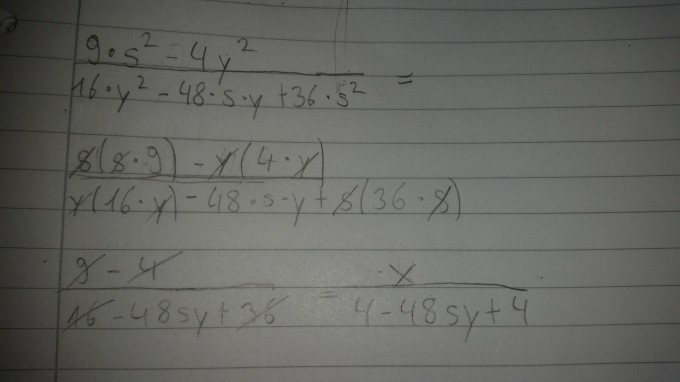 9·s² - 4y²
16·y² - 48·s·y + 36·s² =
s(s·9) - y(4·y)
y(16·y) - 48·s·y + s(36·s)
9 - 4
16 - 48sy + 36 =
4 - 48sy + 4